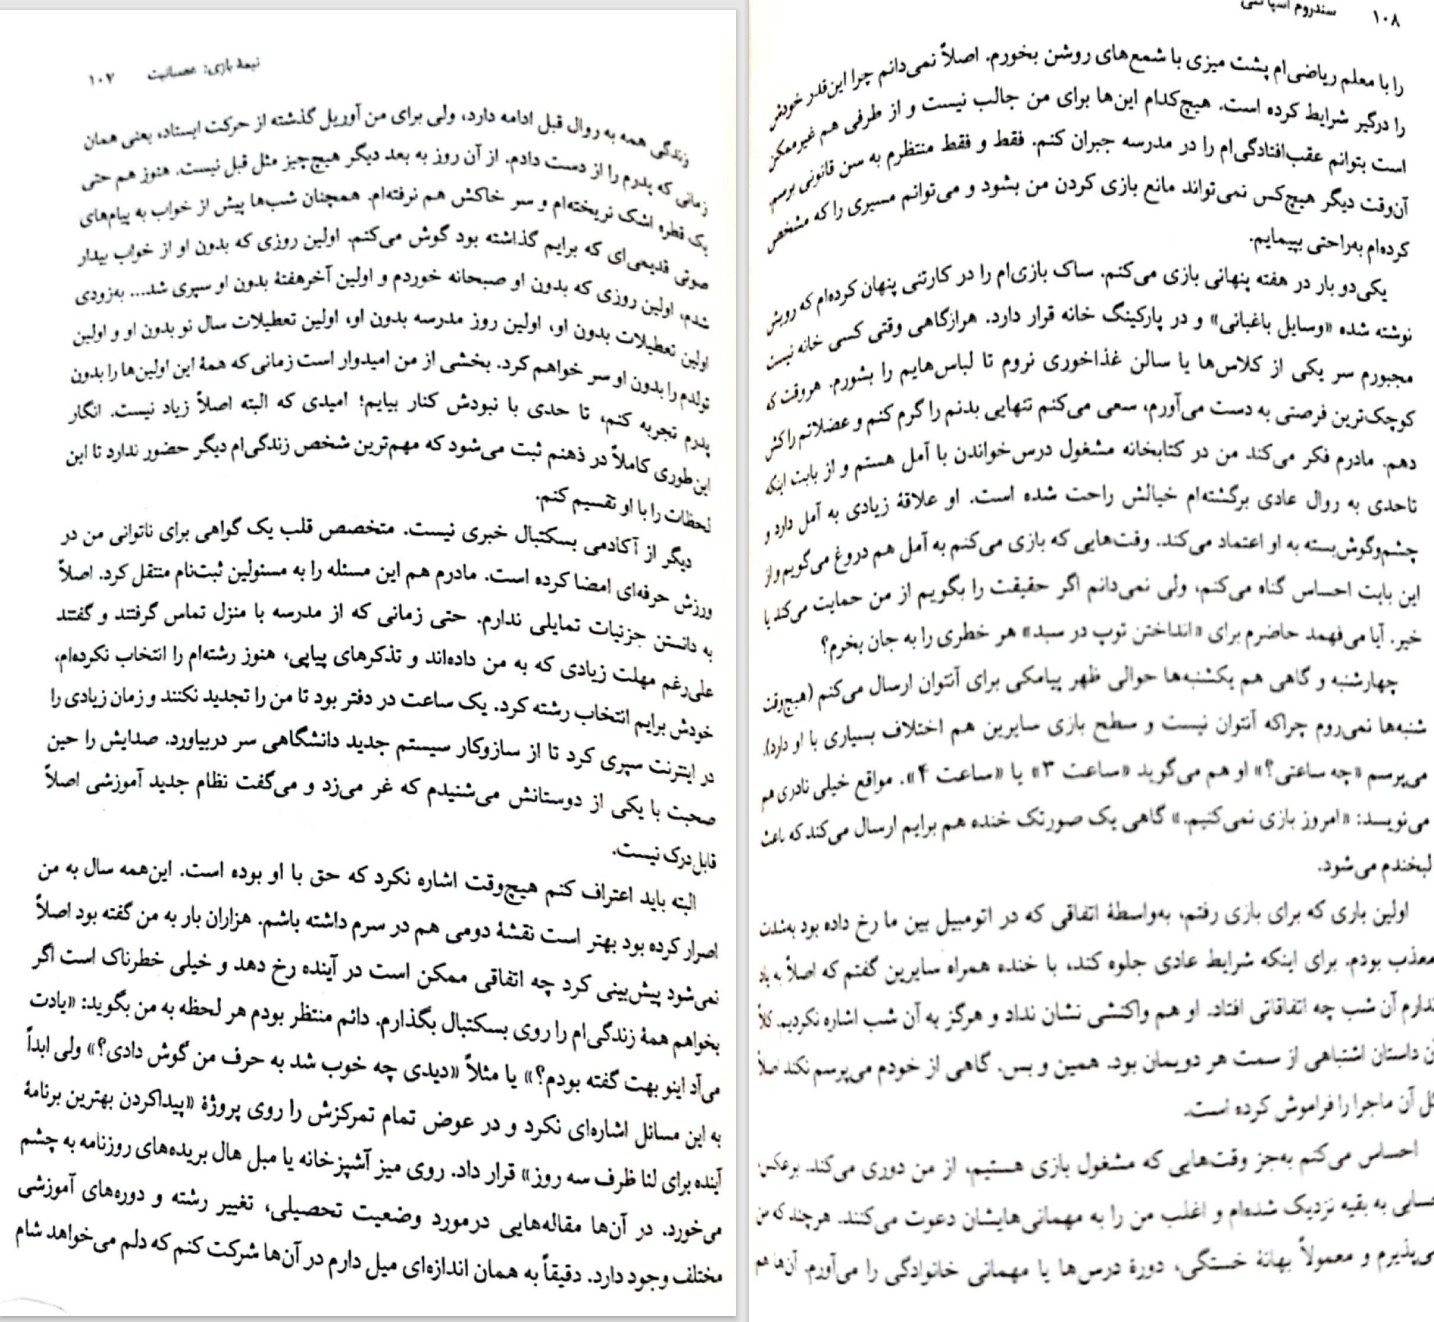 نیمهٔ بازی: عصبانیت ۱۰۷
زندگی همه به روال قبل ادامه دارد، ولی برای من آوریل گذشته از حرکت ایستاد، یعنی همان
زمانی که پدرم را از دست دادم. از آن روز به بعد دیگر هیچ‌چیز مثل قبل نیست. هنوز هم حتی
یک قطره اشک نریخته‌ام و سر خاکش هم نرفته‌ام. همچنان شب‌ها پیش از خواب به پیام‌های
صوتی قدیمی‌ای که برایم گذاشته بود گوش می‌کنم. اولین روزی که بدون او از خواب بیدار
شدم، اولین روزی که بدون او صبحانه خوردم و اولین آخرهفتهٔ بدون او سپری شد... به‌زودی
اولین تعطیلات بدون او، اولین روز مدرسه بدون او، اولین تعطیلات سال نو بدون او و اولین
تولدم را بدون او سر خواهم کرد. بخشی از من امیدوار است زمانی که همهٔ این اولین‌ها را بدون
پدرم تجربه کنم، تا حدی با نبودش کنار بیایم؛ امیدی که البته اصلاً زیاد نیست. انگار
این‌طوری کاملاً در ذهنم ثبت می‌شود که مهم‌ترین شخص زندگی‌ام دیگر حضور ندارد تا این
لحظات را با او تقسیم کنم.
دیگر از آکادمی بسکتبال خبری نیست. متخصص قلب یک گواهی برای ناتوانی من در
ورزش حرفه‌ای امضا کرده است. مادرم هم این مسئله را به مسئولین ثبت‌نام منتقل کرد. اصلاً
به دانستن جزئیات تمایلی ندارم. حتی زمانی که از مدرسه با منزل تماس گرفتند و گفتند
علی‌رغم مهلت زیادی که به من داده‌اند و تذکرهای پیاپی، هنوز رشته‌ام را انتخاب نکرده‌ام،
خودش برایم انتخاب رشته کرد. یک ساعت در دفتر بود تا من را تجدید نکنند و زمان زیادی را
در اینترنت سپری کرد تا از سازوکار سیستم جدید دانشگاهی سر دربیاورد. صدایش را حین
صحبت با یکی از دوستانش می‌شنیدم که غر می‌زد و می‌گفت نظام جدید آموزشی اصلاً
قابل‌درک نیست.
البته باید اعتراف کنم هیچ‌وقت اشاره نکرد که حق با او بوده است. این‌همه سال به من
اصرار کرده بود بهتر است نقشهٔ دومی هم در سرم داشته باشم. هزاران بار به من گفته بود اصلاً
نمی‌شود پیش‌بینی کرد چه اتفاقی ممکن است در آینده رخ دهد و خیلی خطرناک است اگر
بخواهم همهٔ زندگی‌ام را روی بسکتبال بگذارم. دائم منتظر بودم هر لحظه به من بگوید: «یادت
می‌آد اینو بهت گفته بودم؟» یا مثلاً «دیدی چه خوب شد به حرف من گوش دادی؟» ولی ابداً
به این مسائل اشاره‌ای نکرد و در عوض تمام تمرکزش را روی پروژهٔ «پیداکردن بهترین برنامهٔ
آینده برای لنا ظرف سه روز» قرار داد. روی میز آشپزخانه یا مبل هال بریده‌های روزنامه به چشم
می‌خورد. در آن‌ها مقاله‌هایی درمورد وضعیت تحصیلی، تغییر رشته و دوره‌های آموزشی
مختلف وجود دارد. دقیقاً به همان اندازه‌ای میل دارم در آن‌ها شرکت کنم که دلم می‌خواهد شام
۱۰۸ سندروم
را با معلم ریاضی‌ام پشت میزی با شمع‌های روشن بخورم. اصلاً نمی‌دانم چرا این‌قدر خودش
را درگیر شرایط کرده است. هیچ‌کدام این‌ها برای من جالب نیست و از طرفی هم غیرممکن
است بتوانم عقب‌افتادگی‌ام را در مدرسه جبران کنم. فقط و فقط منتظرم به سن قانونی برسم.
آن‌وقت دیگر هیچ‌کس نمی‌تواند مانع بازی کردن من بشود و می‌توانم مسیری را که مشخص
کرده‌ام به‌راحتی بپیمایم.
یکی‌دو بار در هفته پنهانی بازی می‌کنم. ساک بازی‌ام را در کارتنی پنهان کرده‌ام که رویش
نوشته شده «وسایل باغبانی» و در پارکینگ خانه قرار دارد. هرازگاهی وقتی کسی خانه نیست
مجبورم سر یکی از کلاس‌ها یا سالن غذاخوری نروم تا لباس‌هایم را بشورم. هروقت که
کوچک‌ترین فرصتی به دست می‌آورم، سعی می‌کنم تنهایی بدنم را گرم کنم و عضلاتم را کش
دهم. مادرم فکر می‌کند من در کتابخانه مشغول درس‌خواندن با آمل هستم و از بابت اینکه
تاحدی به روال عادی برگشته‌ام خیالش راحت شده است. او علاقهٔ زیادی به آمل دارد و
چشم‌وگوش‌بسته به او اعتماد می‌کند. وقت‌هایی که بازی می‌کنم به آمل هم دروغ می‌گویم و از
این بابت احساس گناه می‌کنم، ولی نمی‌دانم اگر حقیقت را بگویم از من حمایت می‌کند یا
خیر. آیا می‌فهمد حاضرم برای «انداختن توپ در سبد» هر خطری را به جان بخرم؟
چهارشنبه و گاهی هم یکشنبه‌ها حوالی ظهر پیامکی برای آنتوان ارسال می‌کنم (هیچ‌وقت
شنبه‌ها نمی‌روم چراکه آنتوان نیست و سطح بازی سایرین هم اختلاف بسیاری با او دارد).
می‌پرسم «چه ساعتی؟» او هم می‌گوید «ساعت ۳» یا «ساعت ۴». مواقع خیلی نادری هم
می‌نویسد: «امروز بازی نمی‌کنیم.» گاهی یک صورتک خنده هم برایم ارسال می‌کند که باعث
لبخندم می‌شود.
اولین باری که برای بازی رفتم، به‌واسطهٔ اتفاقی که در اتومبیل بین ما رخ داده بود به‌شدت
معذب بودم. برای اینکه شرایط عادی جلوه کند، با خنده همراه سایرین گفتم که اصلاً به یاد
ندارم آن شب چه اتفاقاتی افتاد. او هم واکنشی نشان نداد و هرگز به آن شب اشاره نکردیم. کلاً
آن داستان اشتباهی از سمت هر دویمان بود. همین و بس. گاهی از خودم می‌پرسم نکند اصلاً
کل آن ماجرا را فراموش کرده است.
احساس می‌کنم به‌جز وقت‌هایی که مشغول بازی هستیم، از من دوری می‌کند. برعکس،
حسابی به بقیه نزدیک شده‌ام و اغلب من را به مهمانی‌هایشان دعوت می‌کنند. هرچند که من
می‌پذیرم و معمولاً بهانهٔ خستگی، دورهٔ درس‌ها یا مهمانی خانوادگی را می‌آورم. آن‌ها هم